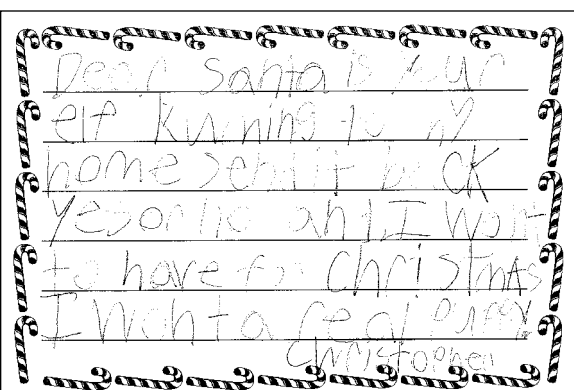 Dear Santa is your
elf kumming to my
home send it back
yes or no and I want
to have for Christmas
I Want a real puppy
Christopher